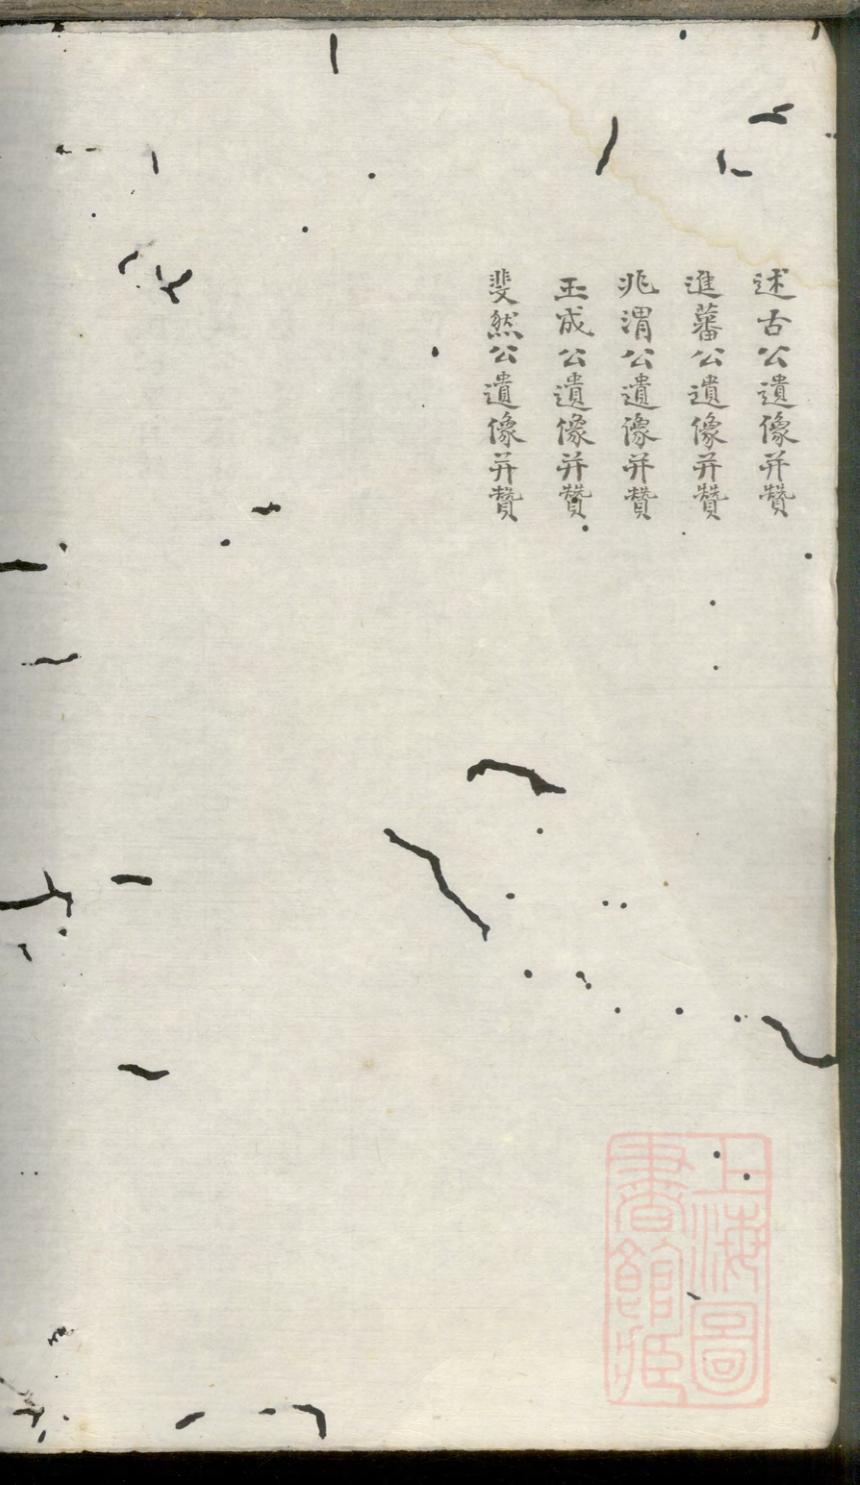 述古公遺像并贊
進蕃公遺像并贊
兆渭公遺像并贊
玉成公遺像并贊
斐然公遺像并贊
上海圖
書館藏